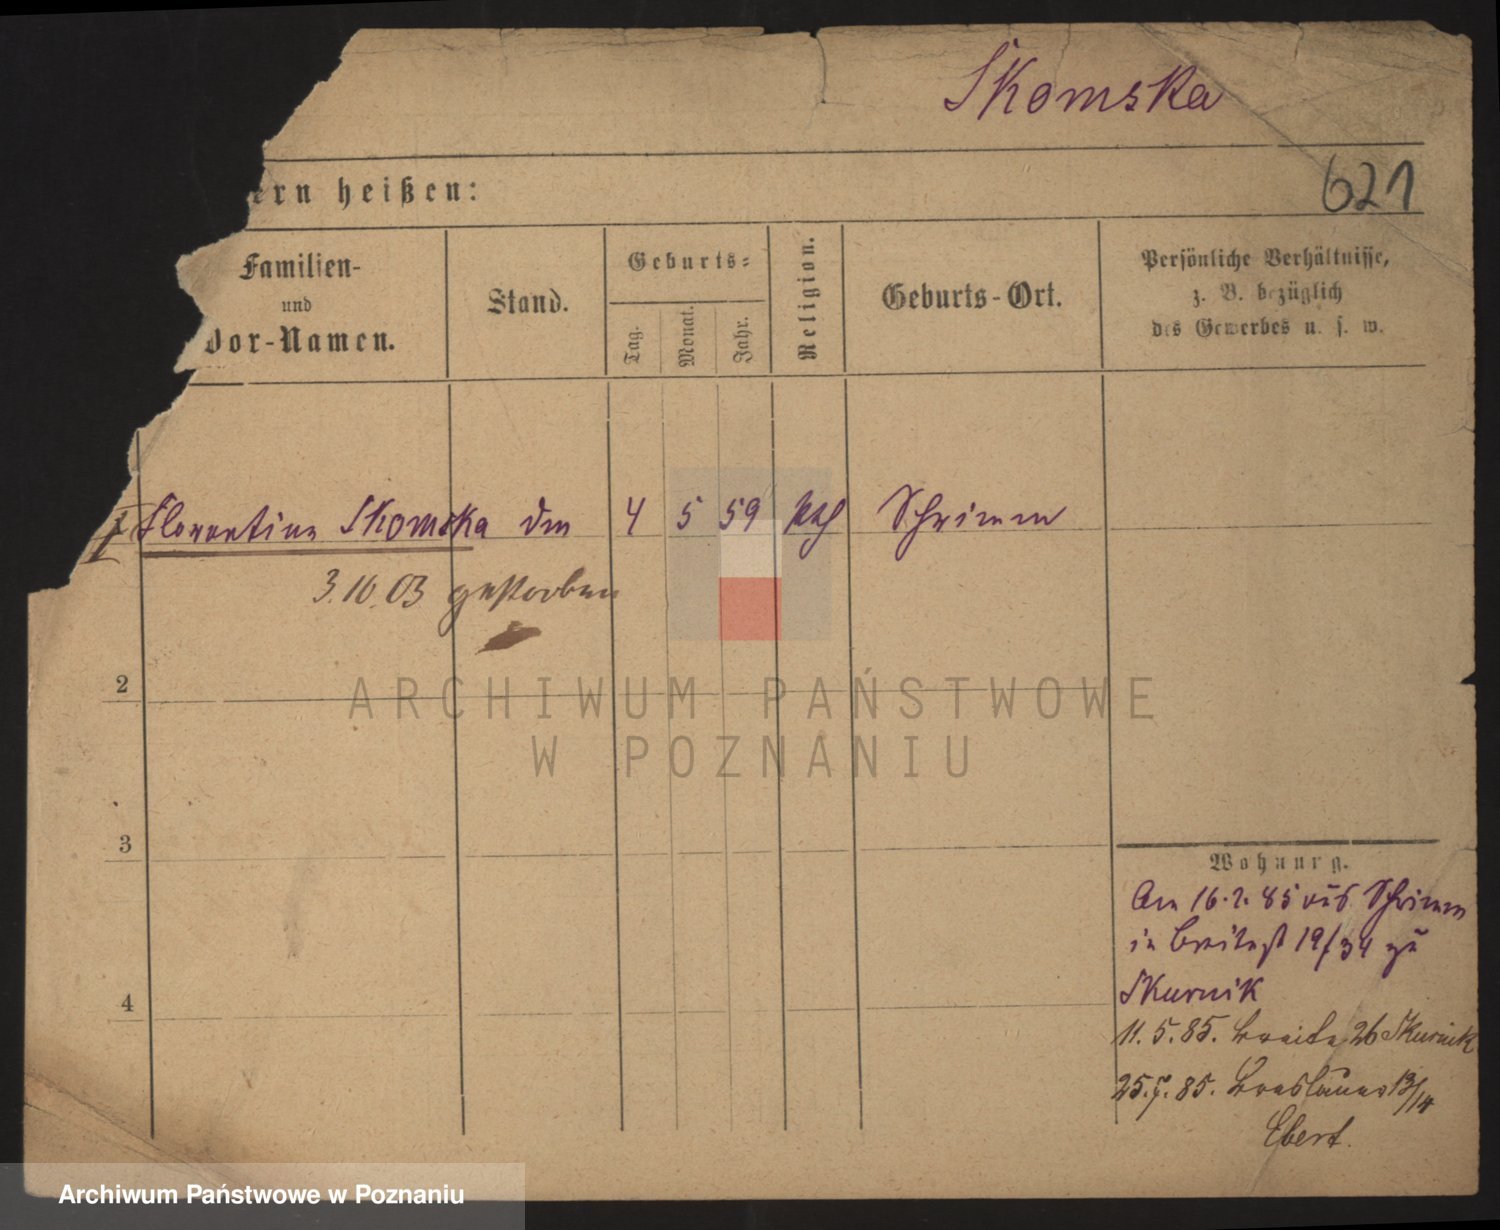 Skomska
ern heißen:
621
Familien-
und
Vor-Namen.
Stand.
Geburts-
Tag.
Monat.
Jahr.
Religion.
Geburts-Ort.
Persönliche Verhältnisse,
z. B. bezüglich
des Gewerbes u. s. w.
1 Florentine Skomska 4 5 59 kath Schrimm
3.10.03 gestorben
2
3
4
Wohnung.
Am 16.2.85 aus Schrimm
in Breitest 19/34 zu
Skurnik
11.5.85. Breite 26 Skurnik
25.7.85. Breslauer 13/14
Ebert.
ARCHIWUM PAŃSTWOWE
W POZNANIU
Archiwum Państwowe w Poznaniu